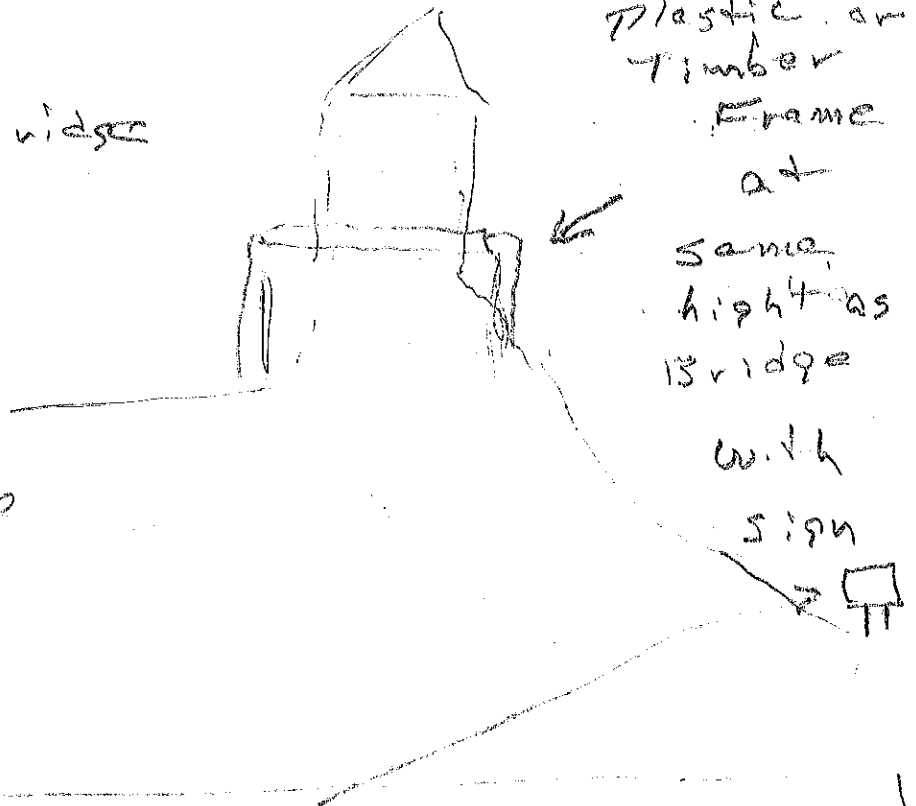 Plastic or
Timber
Frame
ridge
at
same
hight as
Bridge
with
sign